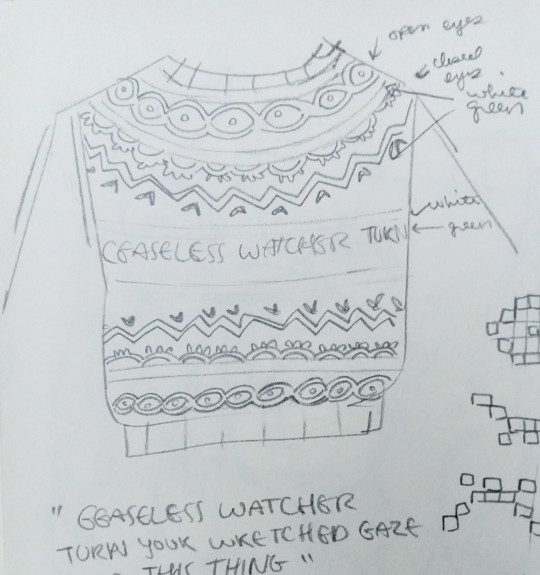 open eyes
closed
eyes
white
green
white
green
CEASELESS WATCHER TURN
" CEASELESS WATCHER
TURN YOUR WRETCHED GAZE
THIS THING "